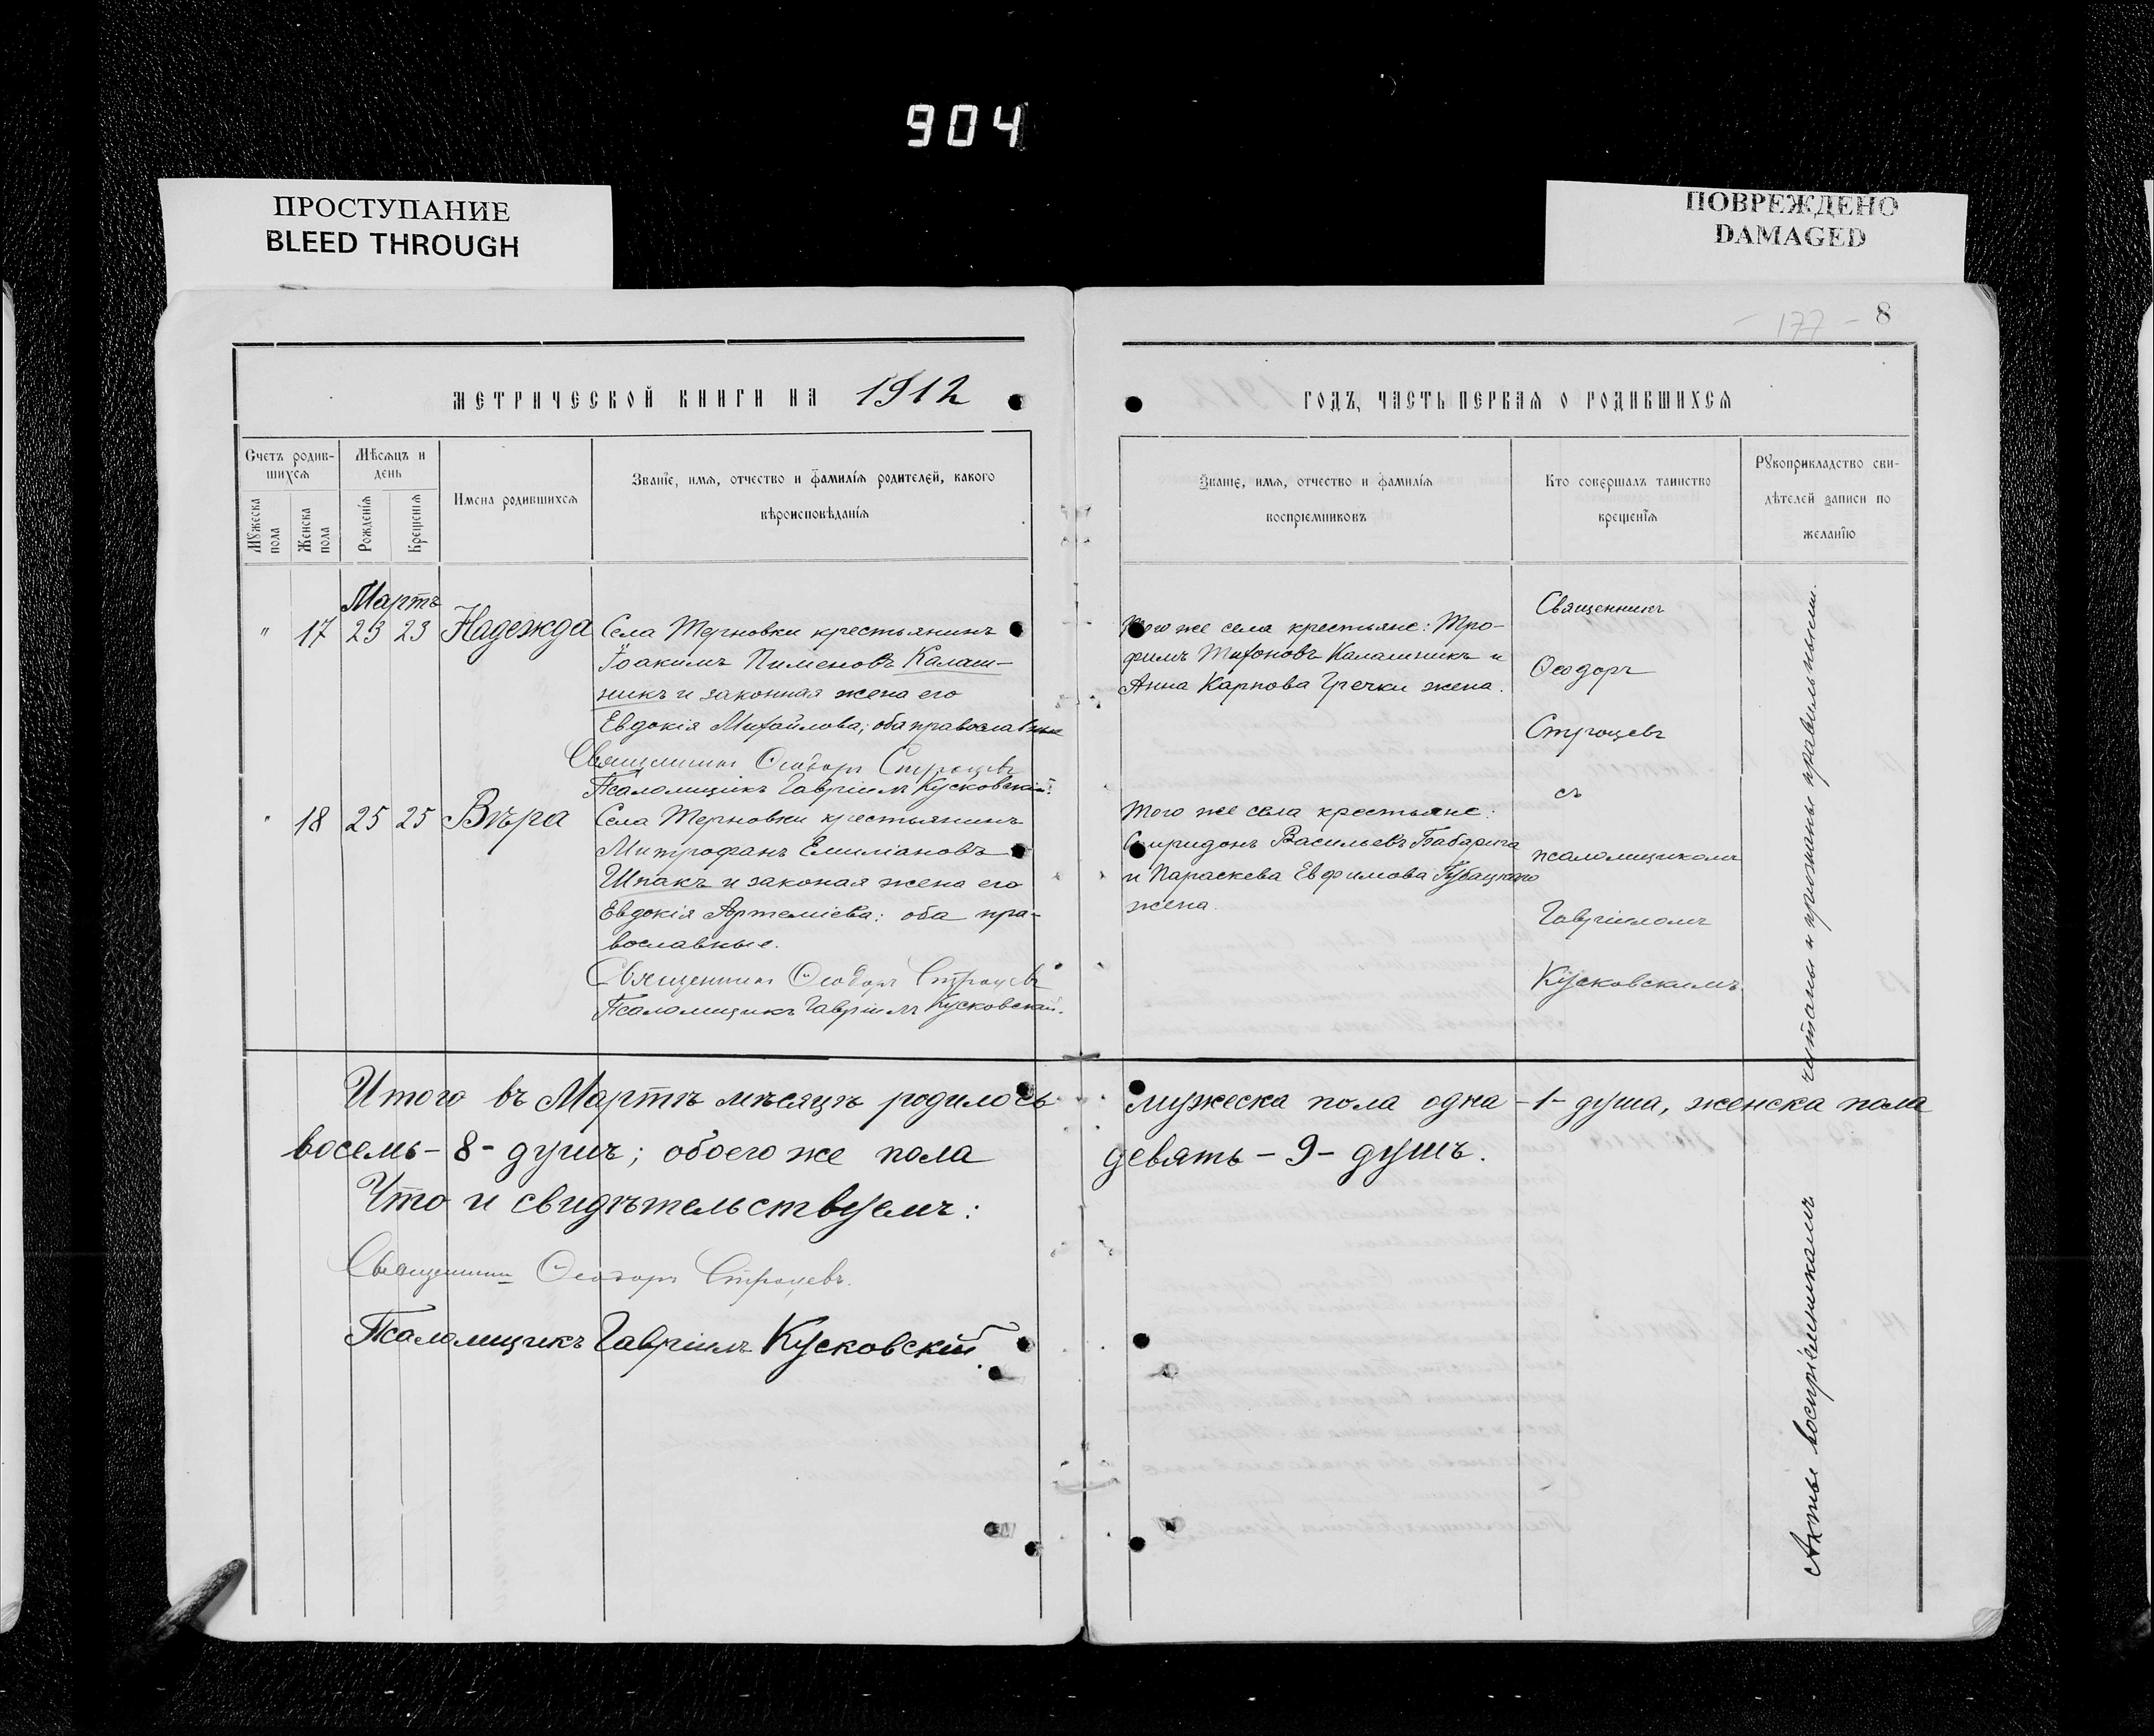 904
ПРОСТУПАНИЕ
BLEED THROUGH
ПОВРЕЖДЕНО
DAMAGED
- 177 - 8
МЕТРИЧЕСКОЙ КНИГИ НА 1912
ГОДЪ, ЧАСТЬ ПЕРВАЯ О РОДИВШИХСЯ
Счетъ родив-
шихся
Мужеска
пола
Женска
пола
Мѣсяцъ и
день
Рожденія
Крещенія
Имена родившихся
Званіе, имя, отчество и фамилія родителей, какого
вѣроисповѣданія
Званіе, имя, отчество и фамилія
воспріемниковъ
Кто совершалъ таинство
крещенія
Рукоприкладство сви-
дѣтелей записи по
желанію
Мартъ
" 17 23 23 Надежда
Села Терновки крестьянинъ
Іоакимъ Пименовъ Калаш-
никъ и законная жена его
Евдокія Михайлова; оба православные
Священникъ Ѳеодоръ Строцевъ
Псаломщикъ Гавріилъ Кусковскій.
Того же села крестьяне: Тро-
фимъ Тихоновъ Калашникъ и
Анна Карпова Гречки жена.
" 18 25 25 Вѣра
Села Терновки крестьянинъ
Митрофанъ Емиліановъ
Шпакъ и законая жена его
Евдокія Артеміева: оба пра-
вославные.
Священникъ Ѳеодоръ Строцевъ
Псаломщикъ Гавріилъ Кусковскій.
Того же села крестьяне:
Спиридонъ Васильевъ Бабарига
и Параскева Евфимова
жена.
Священникъ
Ѳеодоръ
Строцевъ
съ
псаломщикомъ
Гавріиломъ
Кусковскимъ.
Акты воспріемникамъ читаны и признаны правильными.
Итого въ Мартѣ мѣсяцѣ родилось мужеска пола одна - 1 - душа, женска пола
восемь - 8 - душъ; обоего же пола девять - 9 - душъ.
Что и свидѣтельствуемъ:
Священникъ Ѳеодоръ Строцевъ.
Псаломщикъ Гавріилъ Кусковскій.